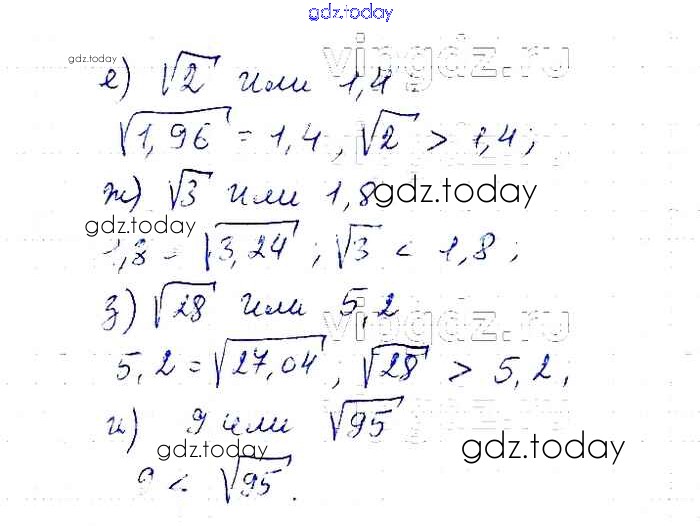 gdz.today
gdz.today vipgdz.ru
е) √2 или 1,4
√1,96 = 1,4, √2 > 1,4;
ж) √3 или 1,8 gdz.today
gdz.today
1,8 = √3,24; √3 < 1,8;
з) √28 или 5,2
vipgdz.ru
5,2 = √27,04, √28 > 5,2,
и) 9 или √95
gdz.today gdz.today
9 < √95.